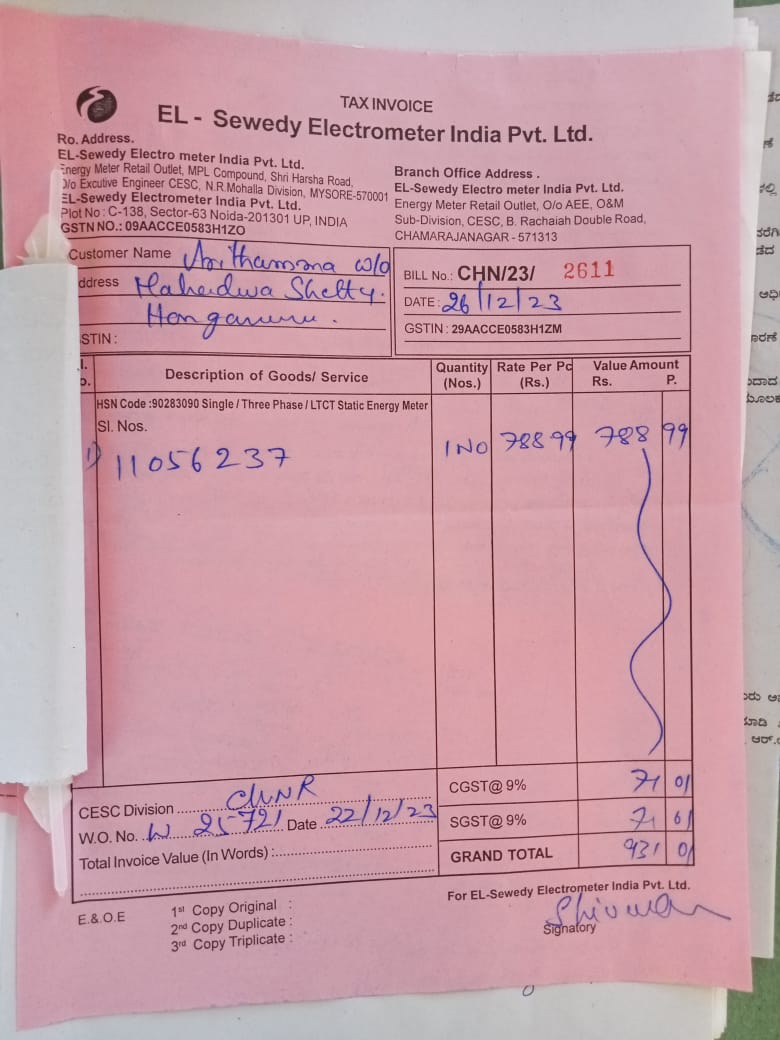 TAX INVOICE
EL - Sewedy Electrometer India Pvt. Ltd.
Ro. Address.
EL-Sewedy Electro meter India Pvt. Ltd.
Energy Meter Retail Outlet, MPL Compound, Shri Harsha Road,
O/o Excutive Engineer CESC, N.R.Mohalla Division, MYSORE-570001
EL-Sewedy Electrometer India Pvt. Ltd.
Plot No : C-138, Sector-63 Noida-201301 UP, INDIA
GSTN NO.: 09AACCE0583H1ZO
Branch Office Address .
EL-Sewedy Electro meter India Pvt. Ltd.
Energy Meter Retail Outlet, O/o AEE, O&M
Sub-Division, CESC, B. Rachaiah Double Road,
CHAMARAJANAGAR - 571313
Customer Name w/o
ddress Shetty.
STIN :
BILL No.: CHN/23/ 2611
DATE : 26/12/23
GSTIN : 29AACCE0583H1ZM
Description of Goods/ Service
Quantity (Nos.)
Rate Per Pc (Rs.)
Value Amount
Rs. P.
HSN Code :90283090 Single / Three Phase / LTCT Static Energy Meter
Sl. Nos.
1) 11056237 1 NO 788 99 788 99
CESC Division
W.O. No. 25721 Date 22/12/23
Total Invoice Value (In Words) :
CGST@ 9% 71 01
SGST@ 9% 71 01
GRAND TOTAL 931 01
E.& O.E
1st Copy Original :
2nd Copy Duplicate :
3rd Copy Triplicate :
For EL-Sewedy Electrometer India Pvt. Ltd.
Signatory